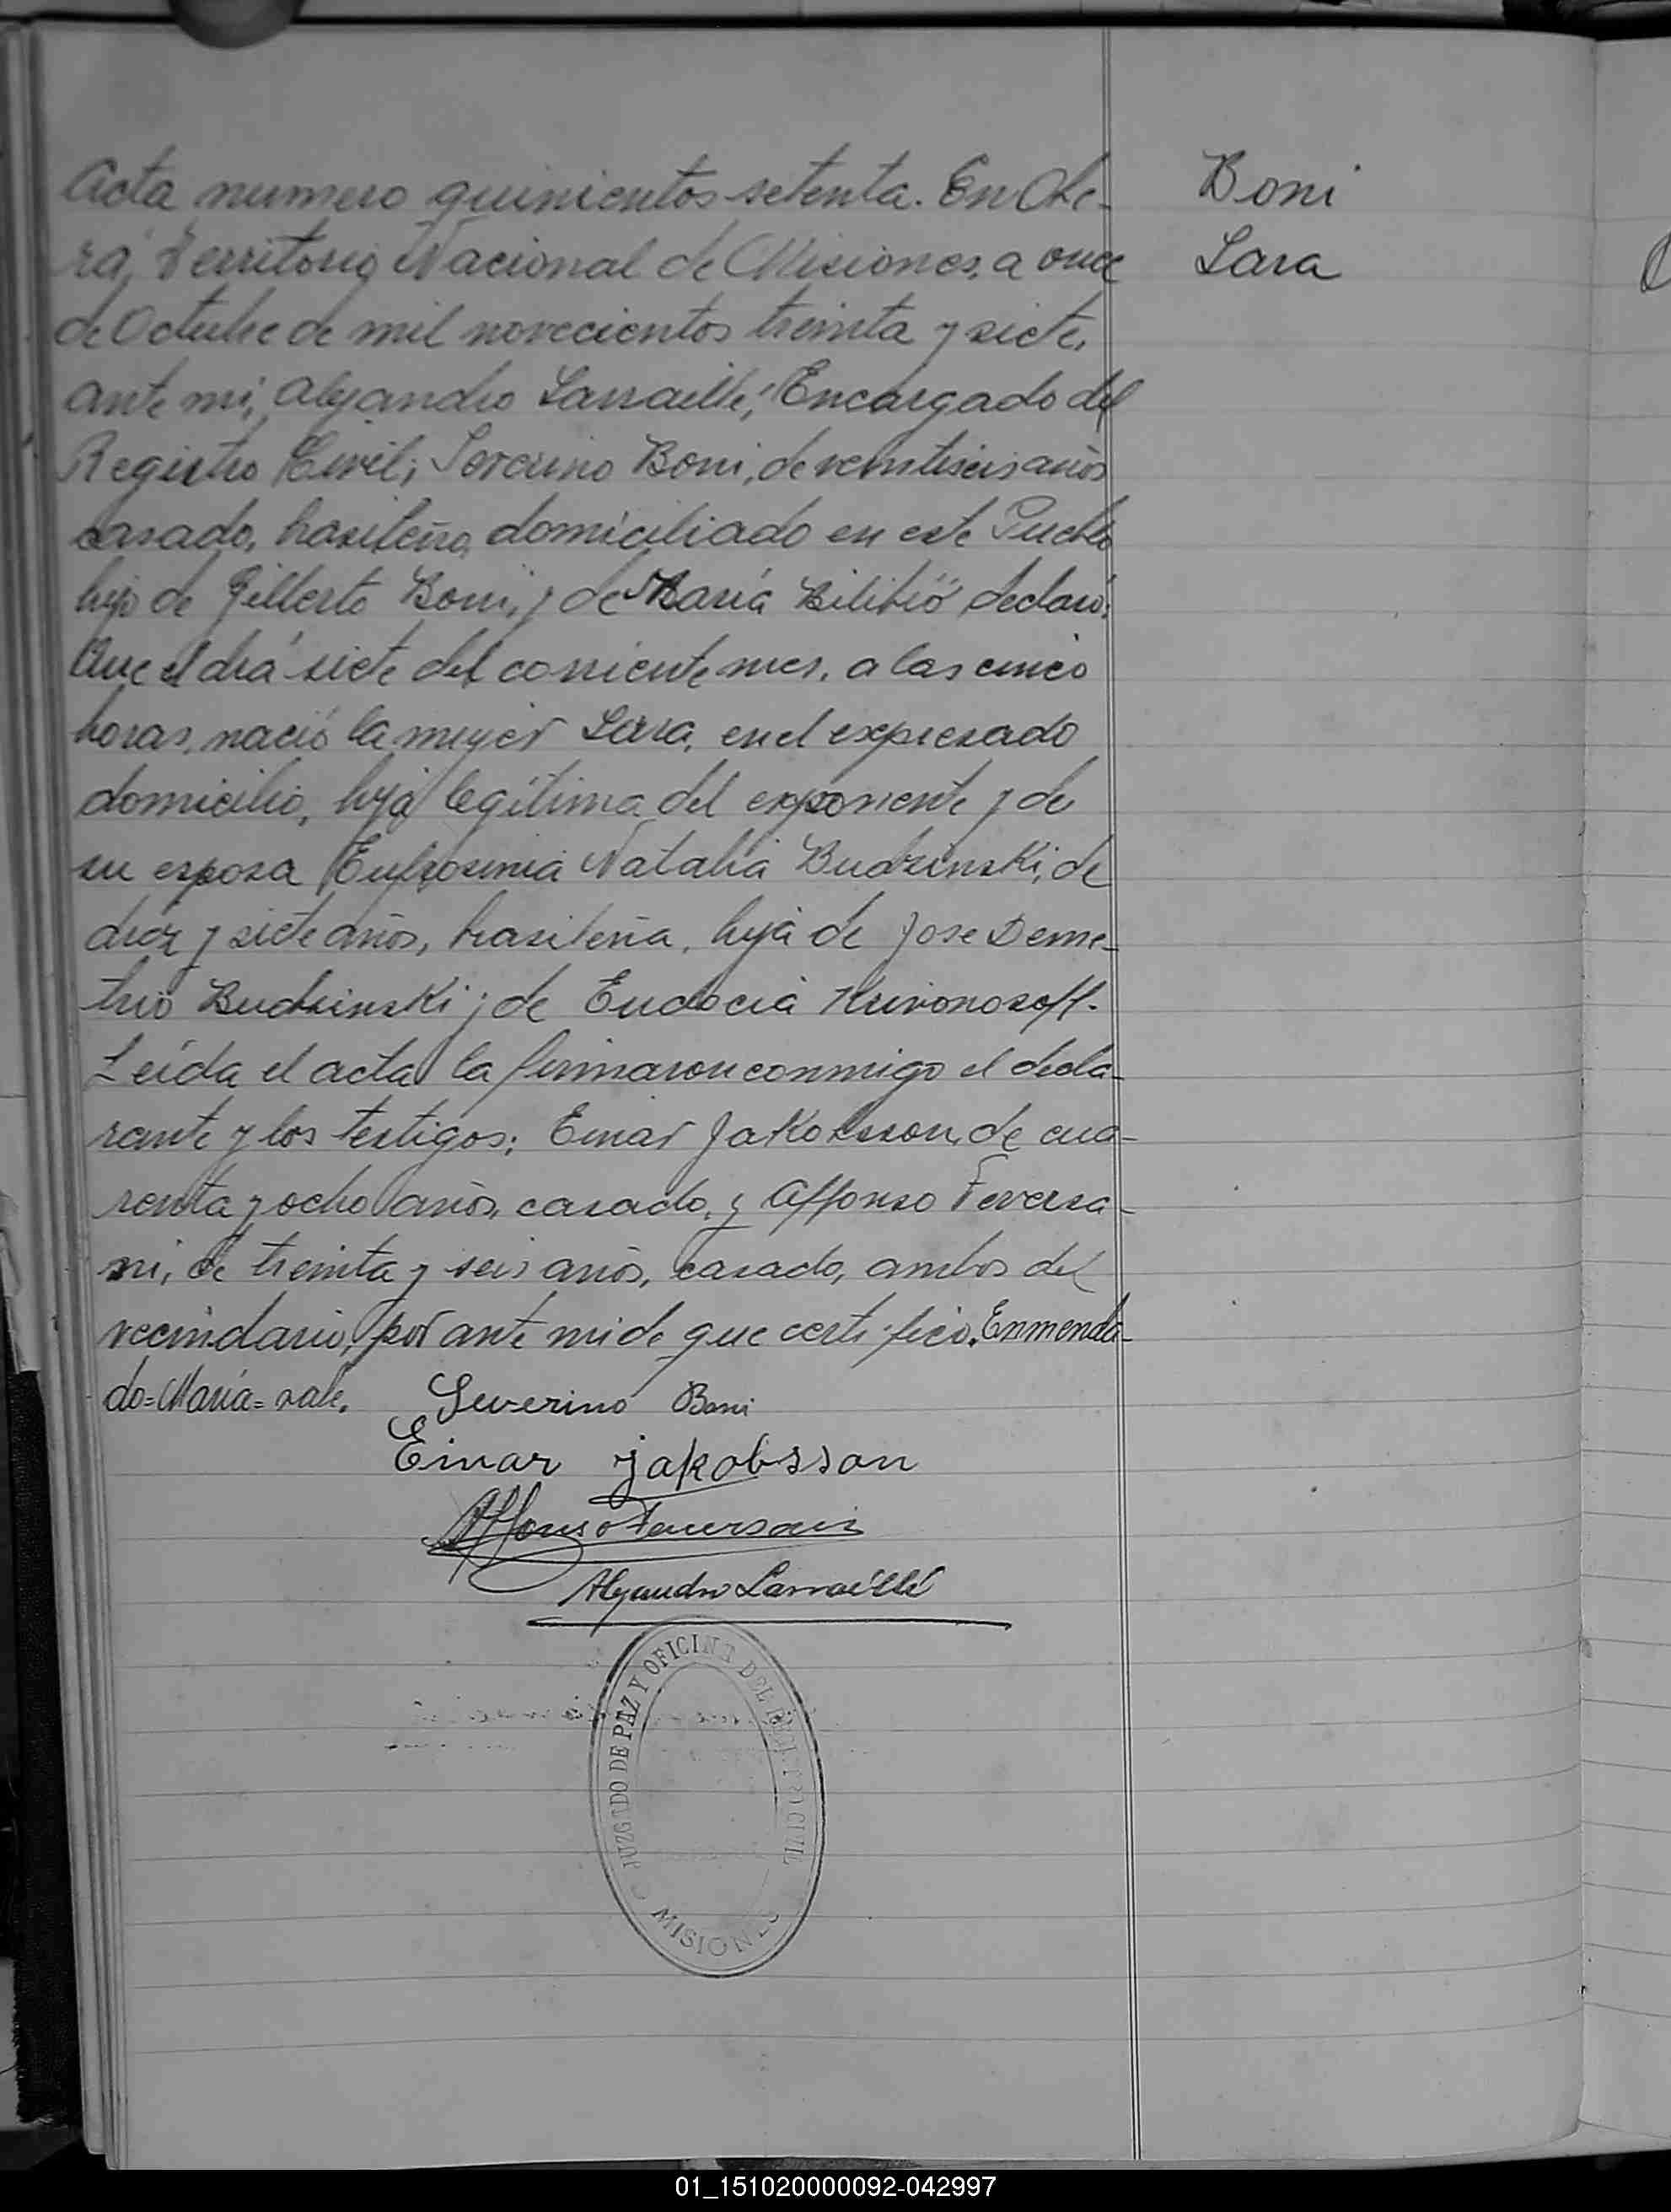 Acta numero quinientos setenta. En Obe-
rá, Territorio Nacional de Misiones, a once
de Octubre de mil novecientos treinta y siete,
ante mi, Alejandro Larraillé, Encargado del
Registro Civil; Severino Boni, de veintiseis años
casado, brasileño, domiciliado en este Pueblo
hijo de Gilberto Boni, y de María Bilibió declaró:
Que el día siete del corriente mes, a las cinco
horas, nació la mujer Sara, en el expresado
domicilio, hija legítima del exponente y de
su esposa Eufrosinia Natalia Budzinski, de
diez y siete años, brasileña, hija de Jose Deme-
trio Budzinski y de Eudocia Krivonosoff.
Leída el acta la firmaron conmigo el decla-
rante y los testigos: Einar Jakobsson, de cua-
renta y ocho años, casado, y Affonso Feversa-
ni, de treinta y seis años, casado, ambos del
vecindario, por ante mi de que certifico. Enmenda-
do=María=vale.
Severino Boni
Einar jakobsson
Affonso Feversani
Alejandro Larraillé
JUZGADO DE PAZ Y OFICINA DEL CIVIL
MISIONES
Boni
Sara
01_151020000092-042997